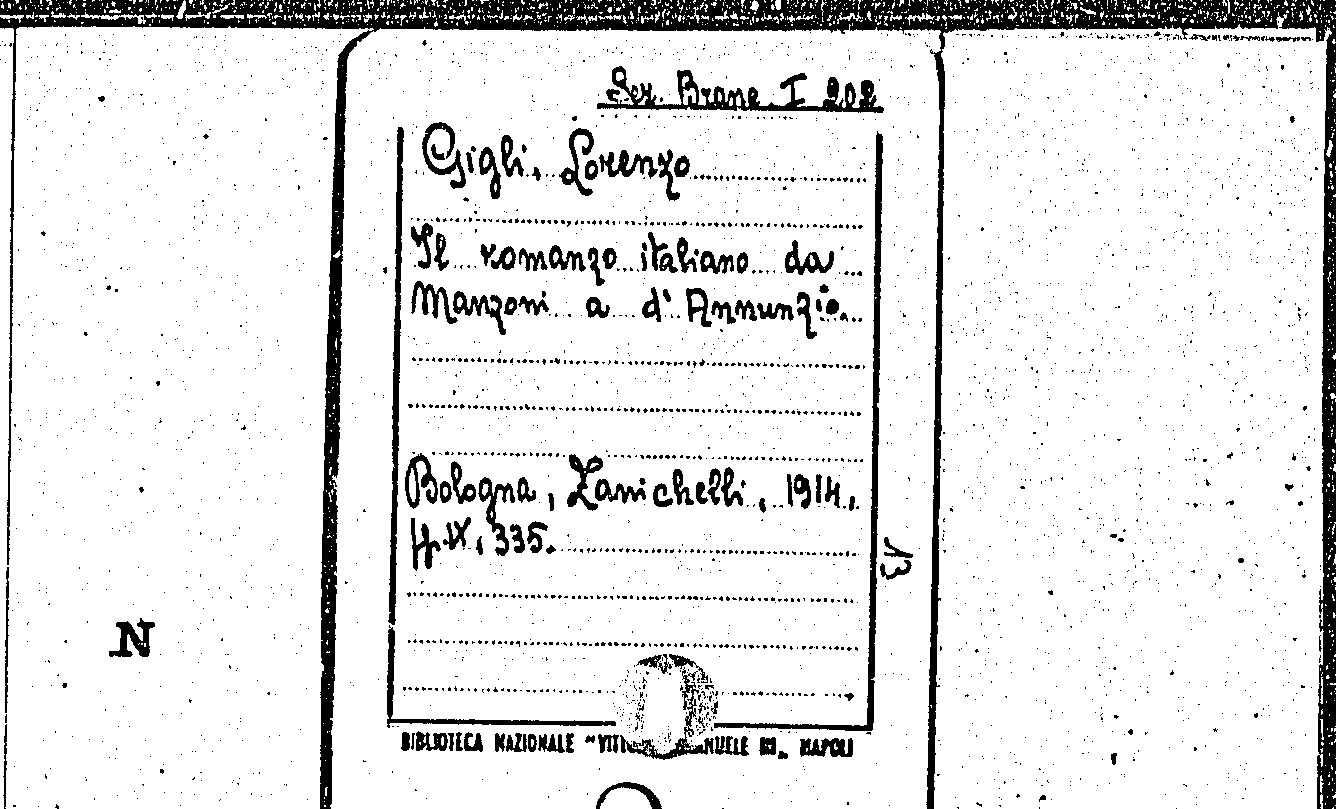 Sez. Branc. I 202
Gigli, Lorenzo
Il romanzo italiano da
Manzoni a d'Annunzio.
Bologna, Zanichelli, 1914,
pp. IX, 335.
13
N
BIBLIOTECA NAZIONALE "VITT ANUELE III„ NAPOLI